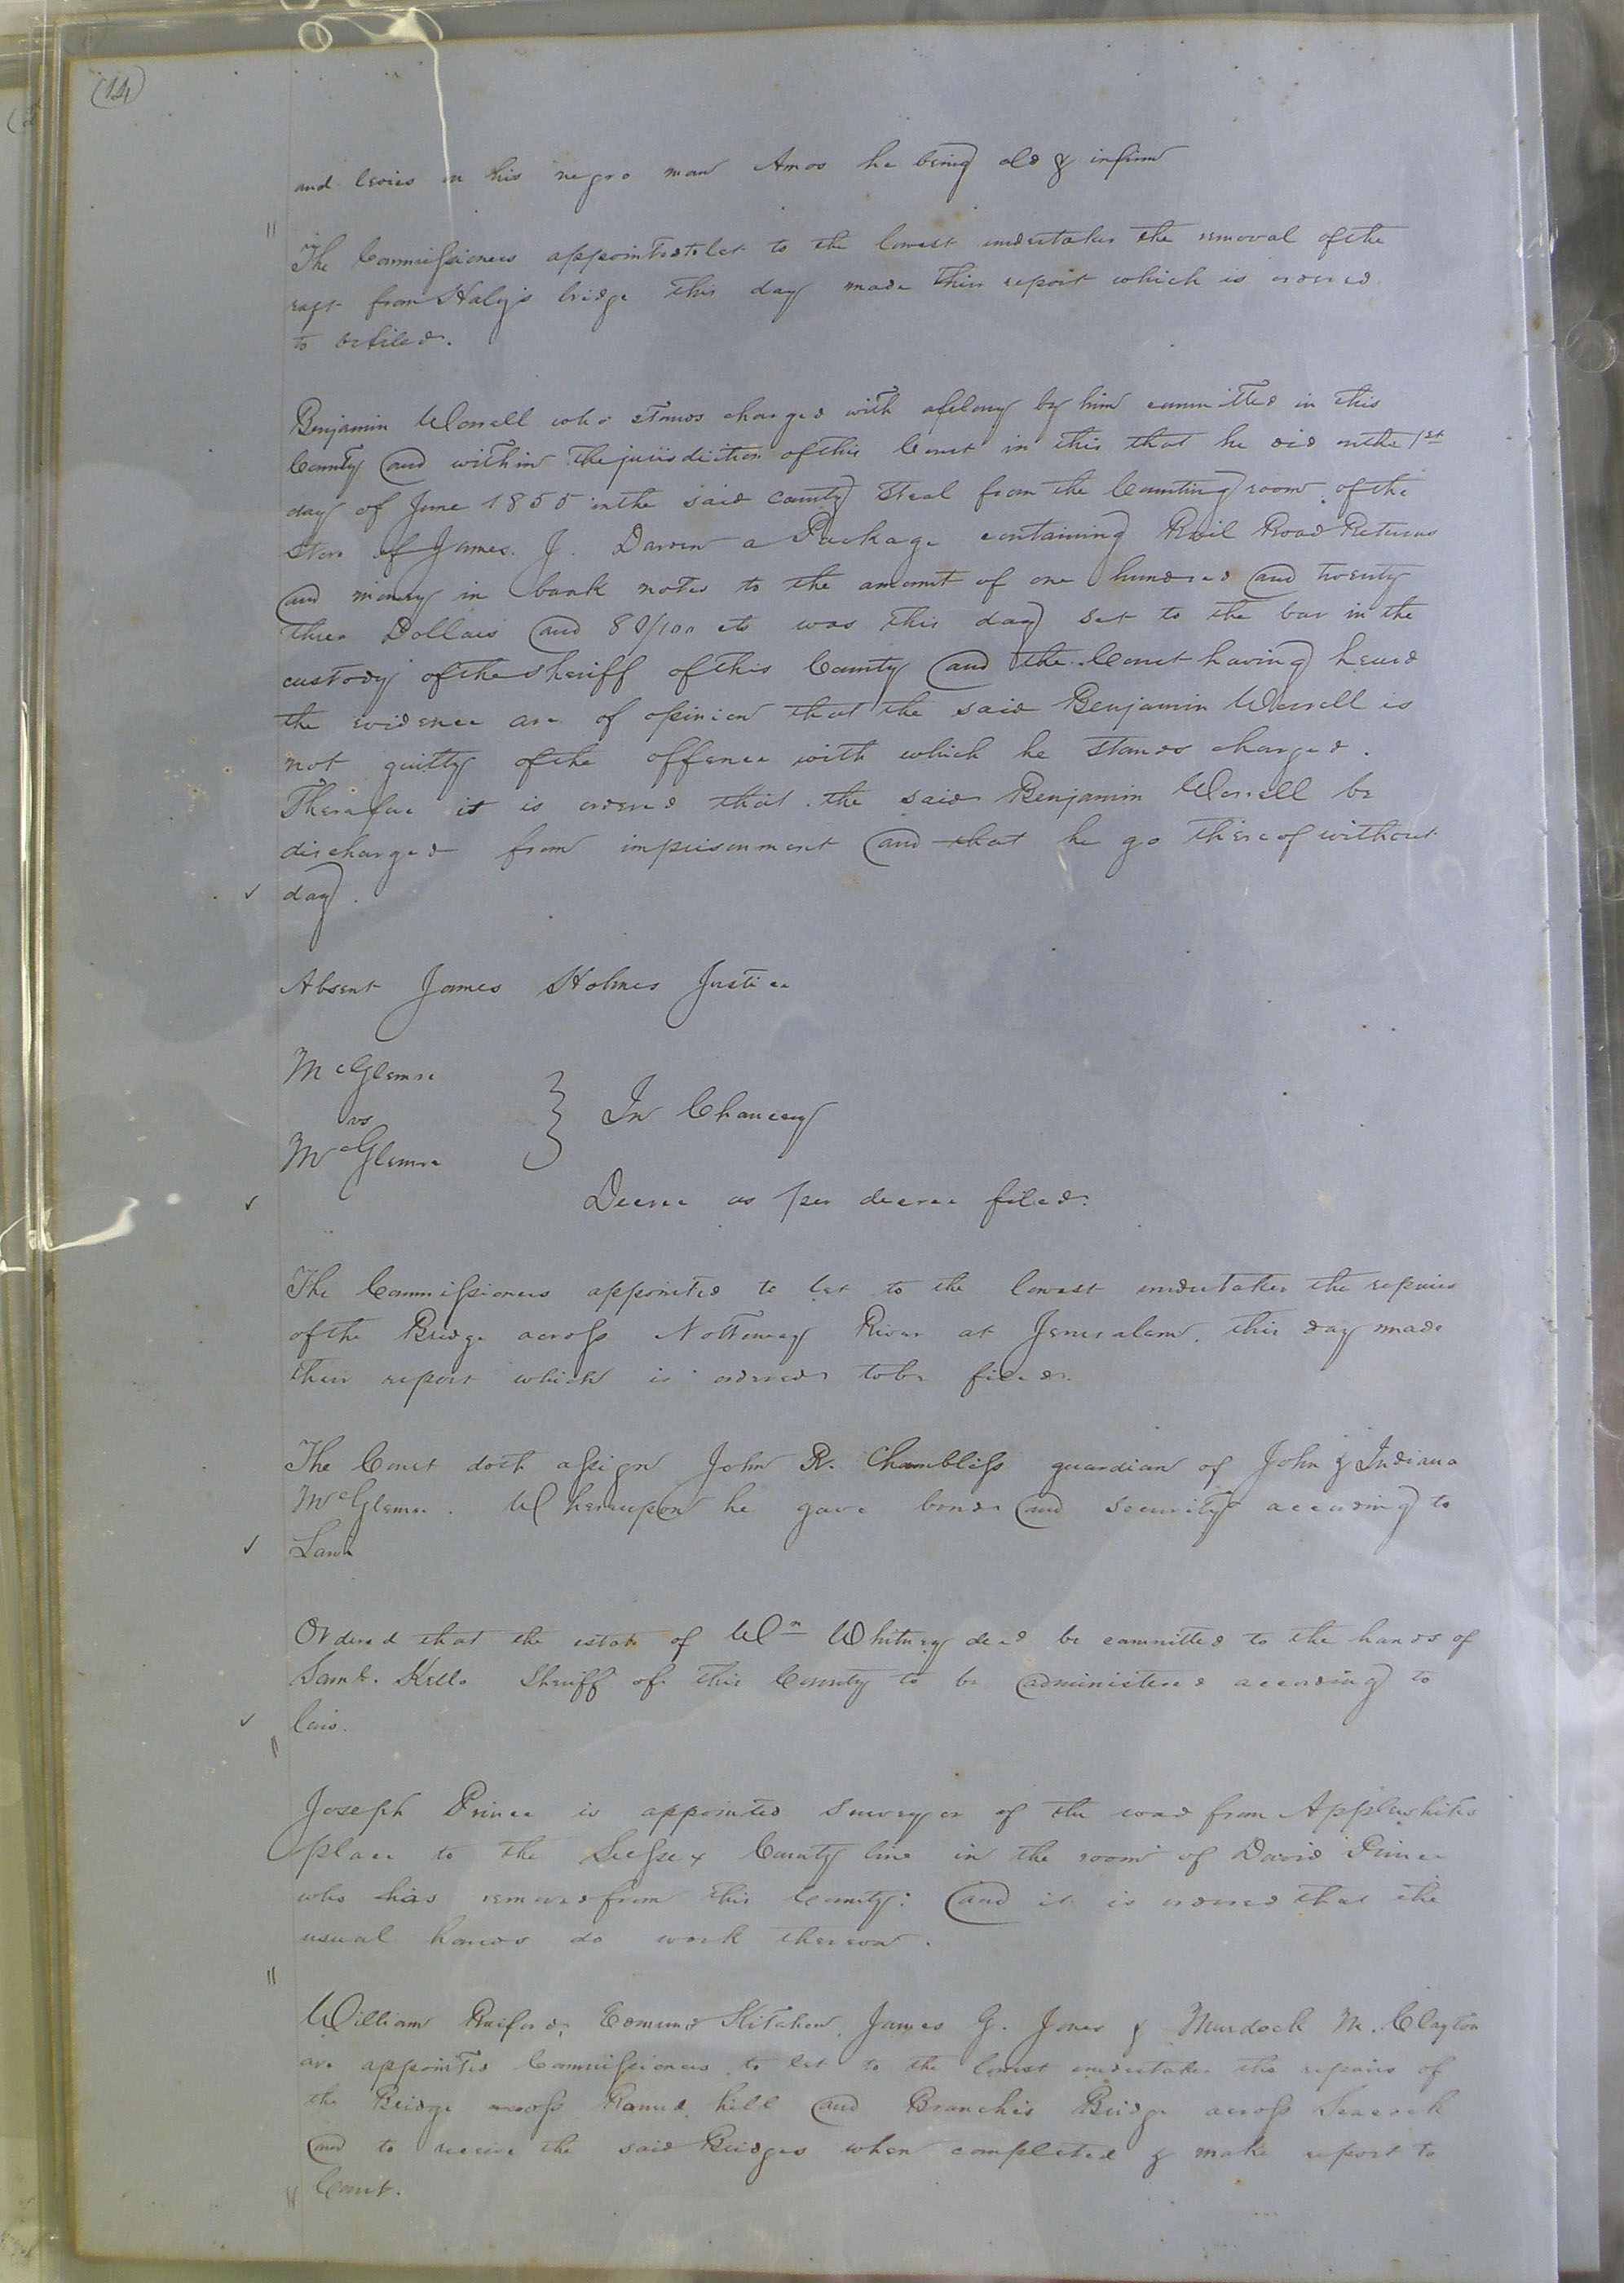 (14)
and levies on his negro man Amos he being old & infirm
The Commissioners appointed to let to the lowest undertaker the removal of the
raft from Haley's bridge this day made their report which is ordered
to be filed.
Benjamin Worrell who stands charged with a felony by him committed in this
County and within the jurisdiction of this Court in this that he did on the 1st
day of June 1855 in the said county steal from the Counting room of the
Store of James. J. Darden a Package containing Rail Road Returns
and money in bank notes to the amount of one hundred and twenty
three Dollars and 80/100 cts was this day set to the bar in the
custody of the Sheriff of this County and the Court having heard
the evidence are of opinion that the said Benjamin Worrell is
not guilty of the offence with which he stands charged.
Therefore it is ordered that the said Benjamin Worrell be
discharged from imprisonment and that he go thereof without
day.
Absent James Holmes Justice
McGlemre
vs
McGlemre
In Chancery
Decree as per decree filed.
The Commissioners appointed to let to the lowest undertaker the repairs
of the Bridge across Nottoway River at Jerusalem. this day made
their report which is ordered to be filed.
The Court doth assign John R. Chambliss guardian of John & Indiana
McGlemre. Whereupon he gave bond and security according to
Law
Ordered that the estate of Wm Whitney decd be committed to the hands of
Saml. Kello Sheriff of this County to be administered according to
law.
Joseph Prince is appointed Surveyor of the road from Applewhites
place to the Sussex County line in the room of David Prince
who has removed from this County: and it is ordered that the
usual hands do work thereon.
William Raiford, Edmund Kitchen, James G. Jones & Murdock M. Clayton
are appointed Commissioners to let to the lowest undertaker the repairs of
the Bridge across hill and Branchis Bridge across Seacock
and to receive the said Bridges when completed & make report to
Court.